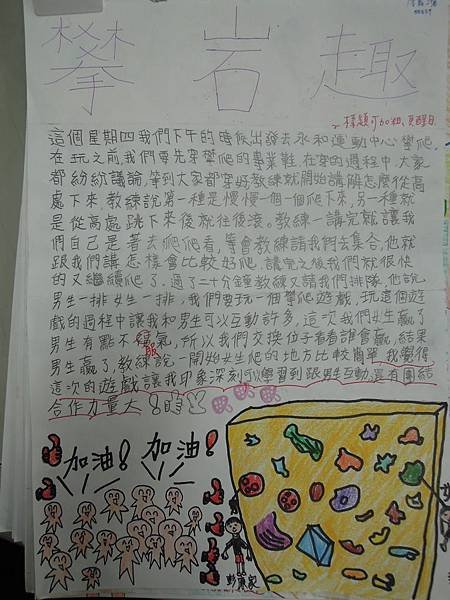 攀岩趣
標題可加粗、更醒目
這個星期四我們下午的時候出發去永和運動中心攀爬,
在玩之前,我們要先穿攀爬的專業鞋,在穿的過程中,大家
都紛紛議論,等到大家都穿好教練就開始講解怎麼從高
處下來,教練說第一種是慢慢一個一個爬下來,另一種就
是從高處跳下來後就往後滾。教練一講完就讓我
們自己是著去爬爬看,等會教練請我們去集合,他就
跟我們講怎樣會比較好爬,講完之後我們就很快
的又繼續爬了,過了二十分鐘教練又請我們排隊,他說
男生一排女生一排,我們要玩一個攀爬遊戲,玩這個遊
戲的過程中讓我和男生可以互動許多,這次我們女生贏了
男生有點不氣,所以我們交換位子看看誰會贏,結果
服
男生贏了,教練說一開始女生爬的地方比較簡單,我覺得
這次的遊戲讓我印象深刻可以學習到跟男生互動,還有團結
合作力量大
加油!加油!